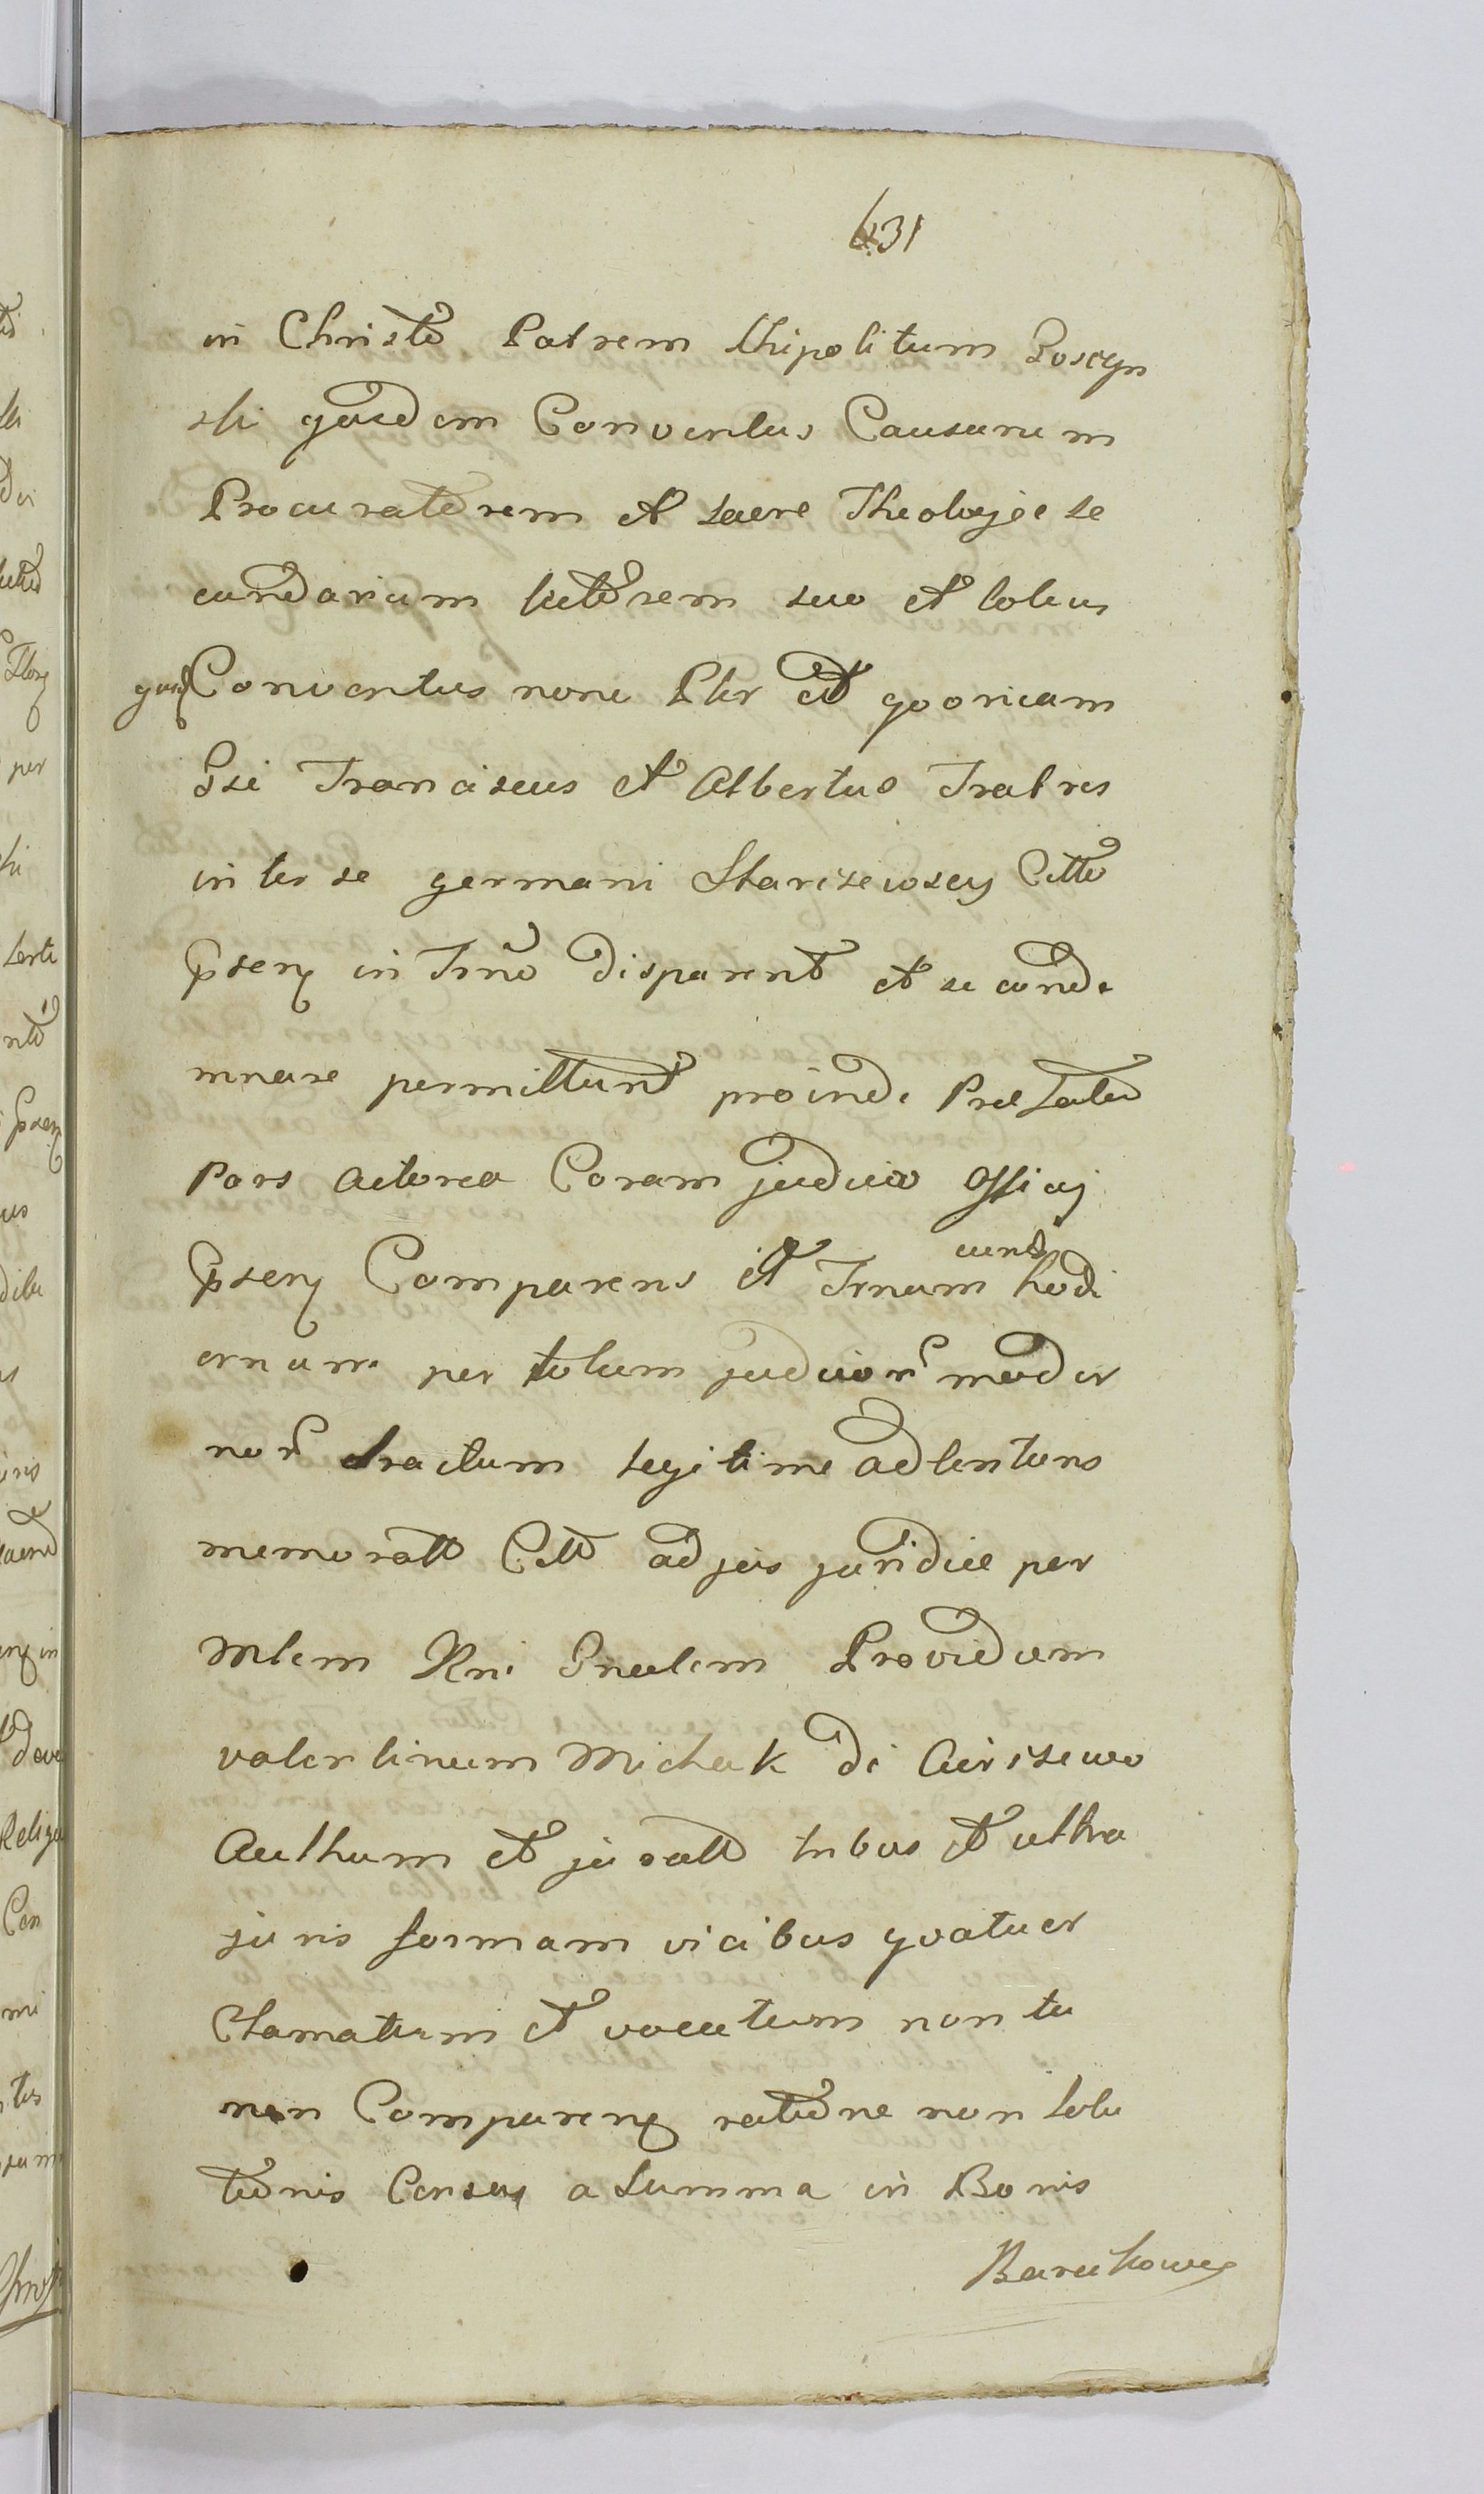 631
in Christo Patrem Chipolitum Goscyn
ski ejusdem Conventus Causarum
Procuratorem et sacre Theologiæ se
cundarium lectorem suo et totius
Conventus noie Pltr et qvoniam
Gsi Franciscus et Albertus Fratres
inter se germani Starczewscy Citti
Pnserj in Trno disparent et se conde
mnare permittunt proinde Præfata
Pars Actorea Coram judicio Officij
cund
Pnserj Comparens et Trnum hodi
ernum per totum judicior moder
nor tractum legitime adtentans
memoratt Citt ad jus juridice per
Mlem Rni Gnalem Providum
Valentinum Michak de
Authum et juratt tribus et ultra
juris formam vicibus qvatuor
Clamatum et vocatum non tn
non Comparenq ratione non solu
tionis Census a Summa in Bonis